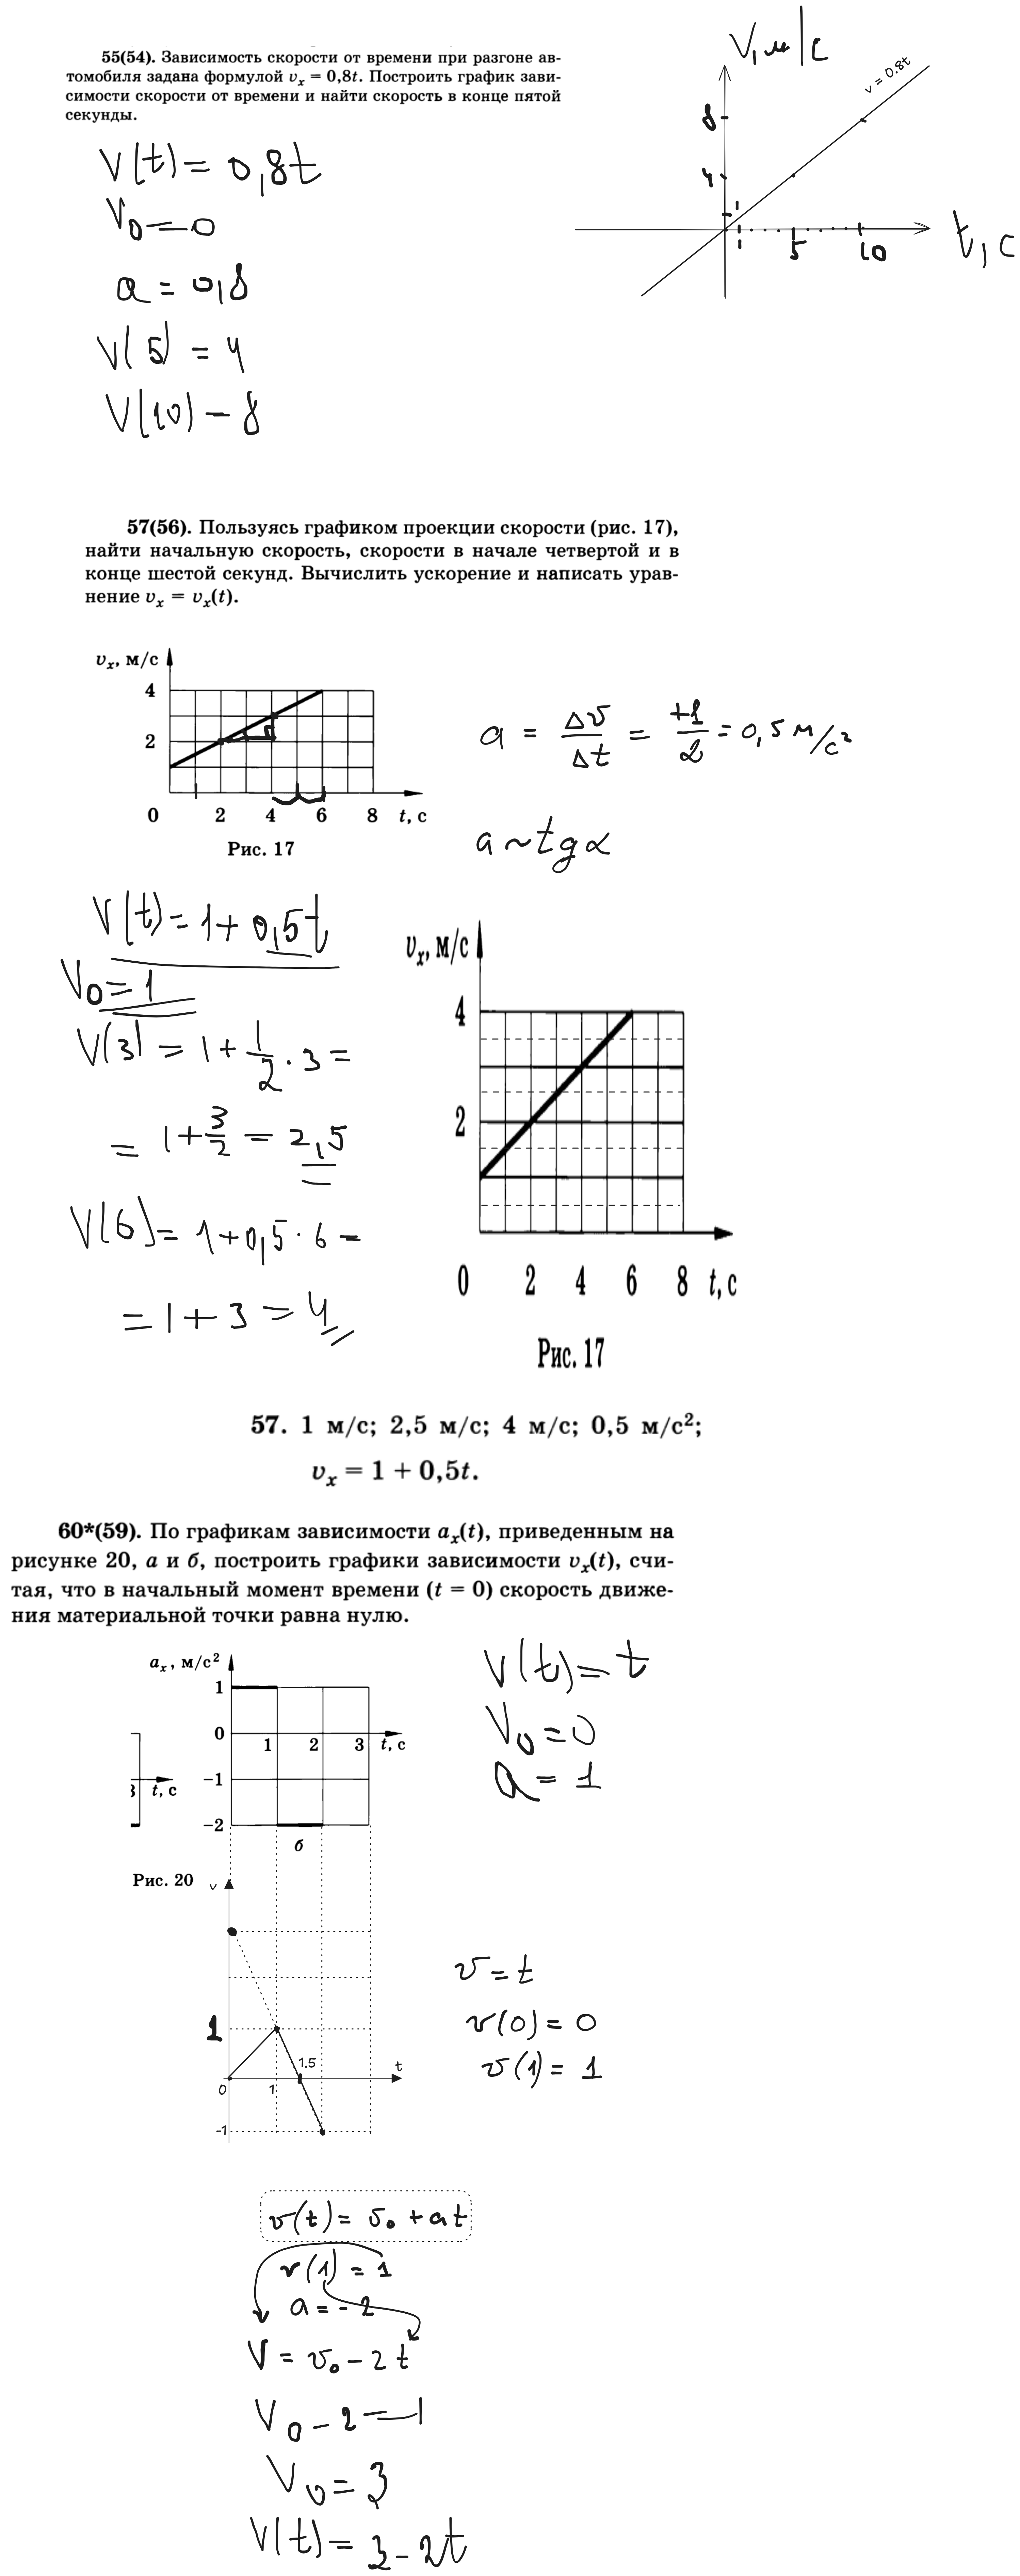 55(54). Зависимость скорости от времени при разгоне ав-
томобиля задана формулой vₓ = 0,8t. Построить график зави-
симости скорости от времени и найти скорость в конце пятой
секунды.
V(t) = 0,8t
V₀ = 0
a = 0,8
V(5) = 4
V(10) - 8
V, м/с
v = 0.8t
8
4
1
1
5
10
t, с
57(56). Пользуясь графиком проекции скорости (рис. 17),
найти начальную скорость, скорости в начале четвертой и в
конце шестой секунд. Вычислить ускорение и написать урав-
нение vₓ = vₓ(t).
vₓ, м/с
4
2
0 2 4 6 8 t, с
Рис. 17
a = Δv/Δt = +1/2 = 0,5 м/с²
a ~ tg α
V(t) = 1 + 0,5t
V₀ = 1
V(3) = 1 + 1/2 · 3 =
= 1 + 3/2 = 2,5
V(6) = 1 + 0,5 · 6 =
= 1 + 3 = 4
vₓ, м/с
4
2
0 2 4 6 8 t, с
Рис. 17
57. 1 м/с; 2,5 м/с; 4 м/с; 0,5 м/с²;
vₓ = 1 + 0,5t.
60*(59). По графикам зависимости aₓ(t), приведенным на
рисунке 20, а и б, построить графики зависимости vₓ(t), счи-
тая, что в начальный момент времени (t = 0) скорость движе-
ния материальной точки равна нулю.
aₓ, м/с²
1
0
1 2 3 t, с
-1
-2
t, с
б
Рис. 20
V(t) = t
V₀ = 0
a = 1
v
1
1.5
t
0
1
-1
v = t
v(0) = 0
v(1) = 1
v(t) = v₀ + at
v(1) = 1
a = -2
V = v₀ - 2t
V₀ - 2 = 1
V₀ = 3
V(t) = 3 - 2t